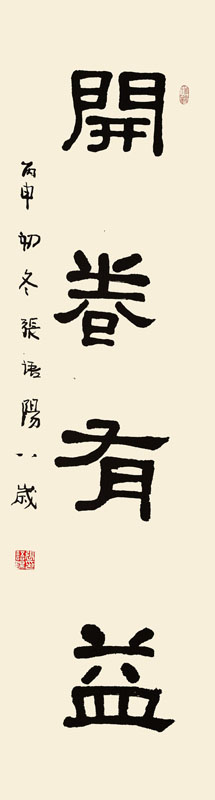 開卷有益
丙申初冬張語陽八歲